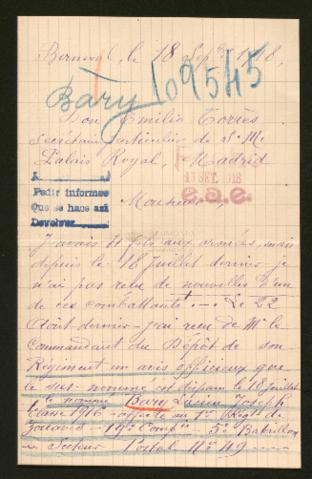 Berneval, le 18 Sepbre 1918,
Bàry 109545
Don Emilio Torrès
Secrétaire particulier de S. M.
Palais Royal, Madrid
SET. 1918
e.a.e.
Pedir informes
Que se hace así
Devolver
Monsieur,
J'avais 4 fils aux armées, mais
depuis le 18 Juillet dernier je
n'ai pas reçu de nouvelles d'un
de ces combattants. — Le 22
Août dernier j'ai reçu de Mr le
Commandant du Dépôt de son
Régiment un avis officieux que
le sus-nommé est disparu le 18 Juillet
le nommé Bary Lucien Joseph
Classe 1916 - affecté au 1er Régt de
Zouaves - 19e Compie - 5e Bataillon
Secteur Postal No 49